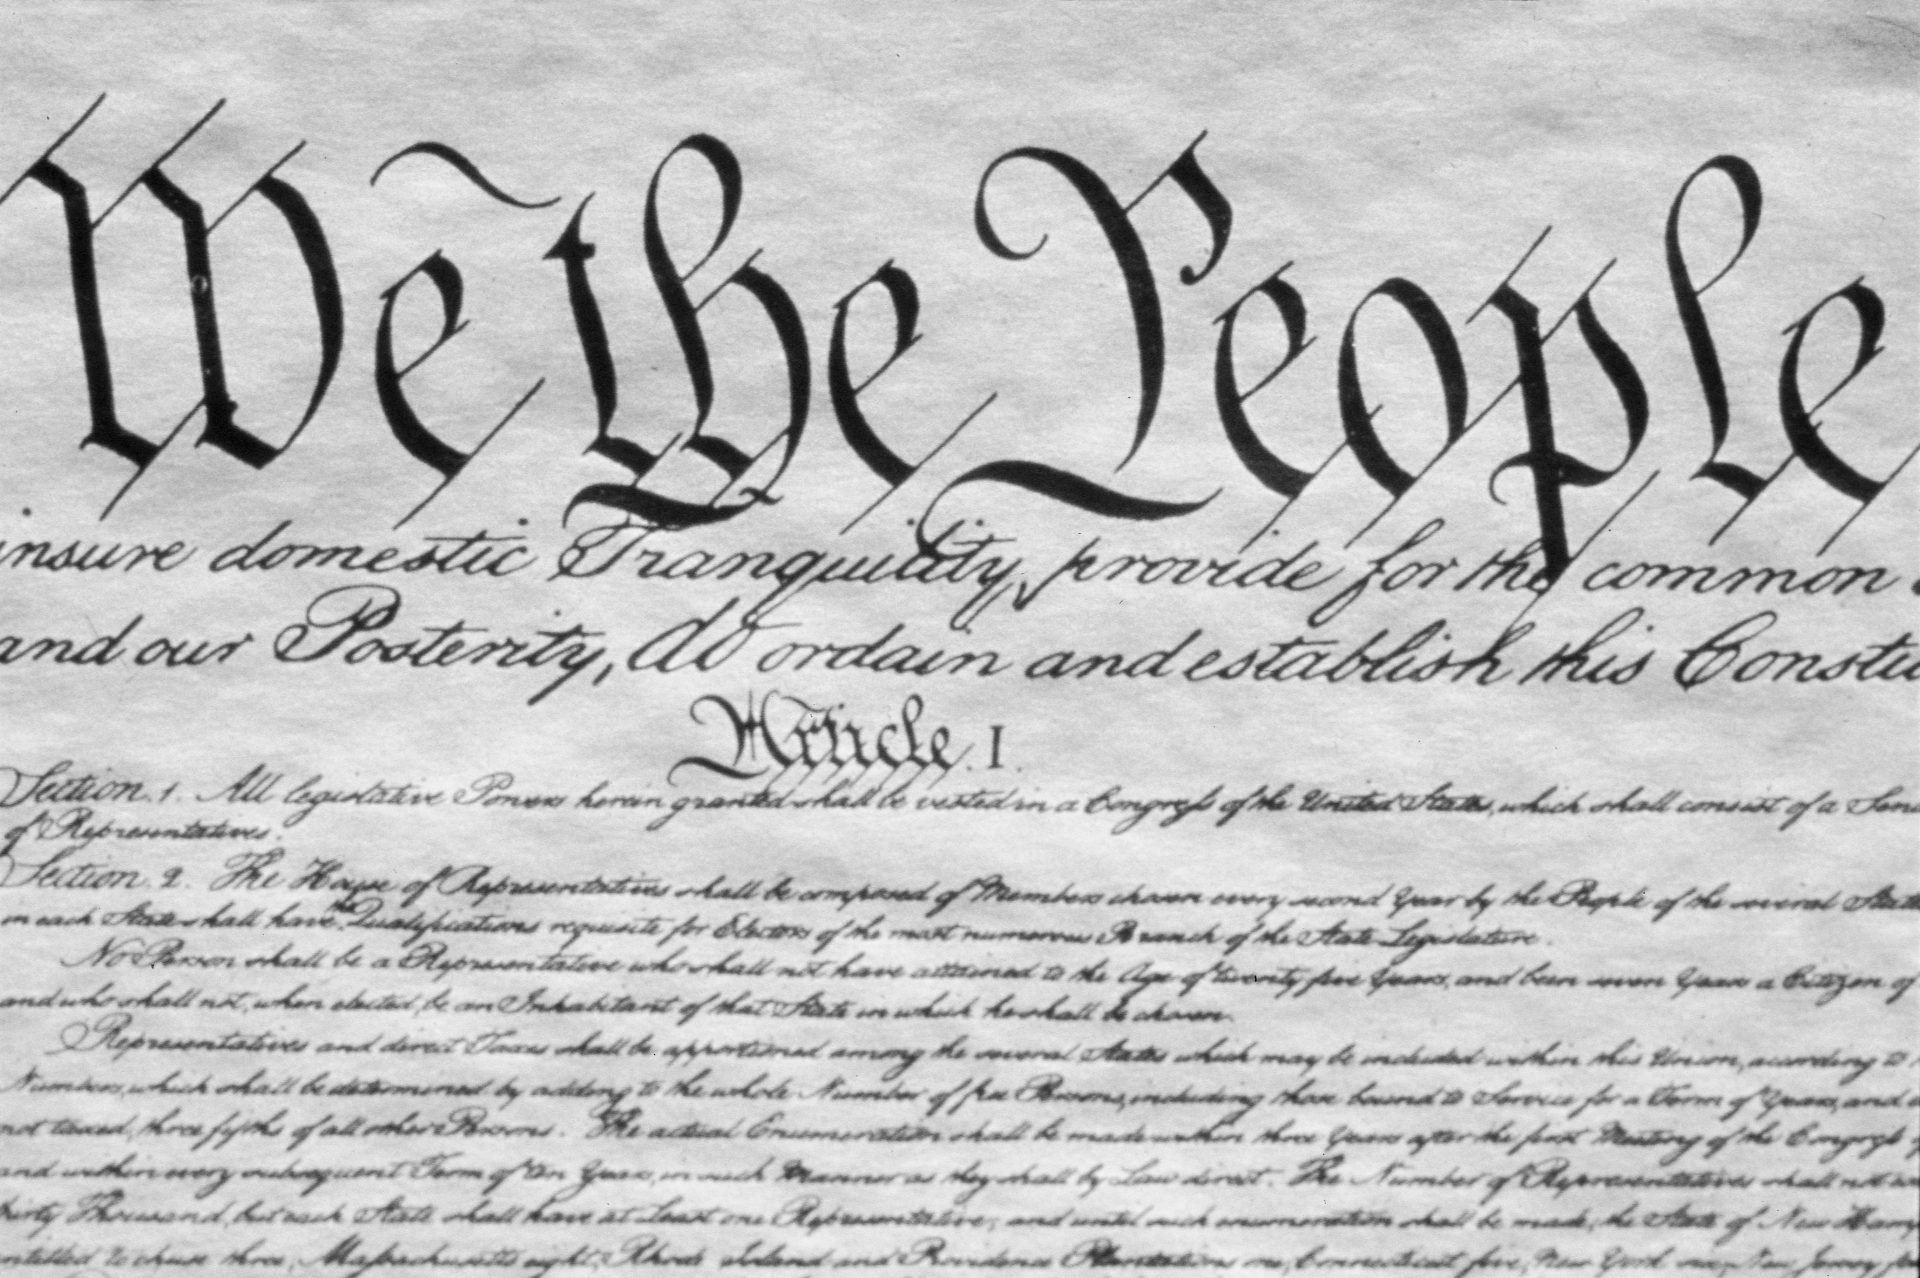 We the People
insure domestic Tranquility, provide for the common
and our Posterity, do ordain and establish this Constit
Article. I.
Section. 1. All legislative Powers herein granted shall be vested in a Congress of the United States, which shall consist of a Sen
of Representatives.
Section. 2. The House of Representatives shall be composed of Members chosen every second Year by the People of the several States
in each State shall have the Qualifications requisite for Electors of the most numerous Branch of the State Legislature.
No Person shall be a Representative who shall not have attained to the Age of twenty five Years, and been seven Years a Citizen of
and who shall not, when elected, be an Inhabitant of that State in which he shall be chosen.
Representatives and direct Taxes shall be apportioned among the several States which may be included within this Union, according to
Numbers, which shall be determined by adding to the whole Number of free Persons, including those bound to Service for a Term of Years, and
not taxed, three fifths of all other Persons. The actual Enumeration shall be made within three Years after the first Meeting of the Congress
and within every subsequent Term of ten Years, in such Manner as they shall by Law direct. The Number of Representatives shall not
thirty Thousand, but each State shall have at Least one Representative; and until such enumeration shall be made, the State of New Hamp
entitled to chuse three, Massachusetts eight, Rhode Island and Providence Plantations one, Connecticut five, New York six, New Jersey